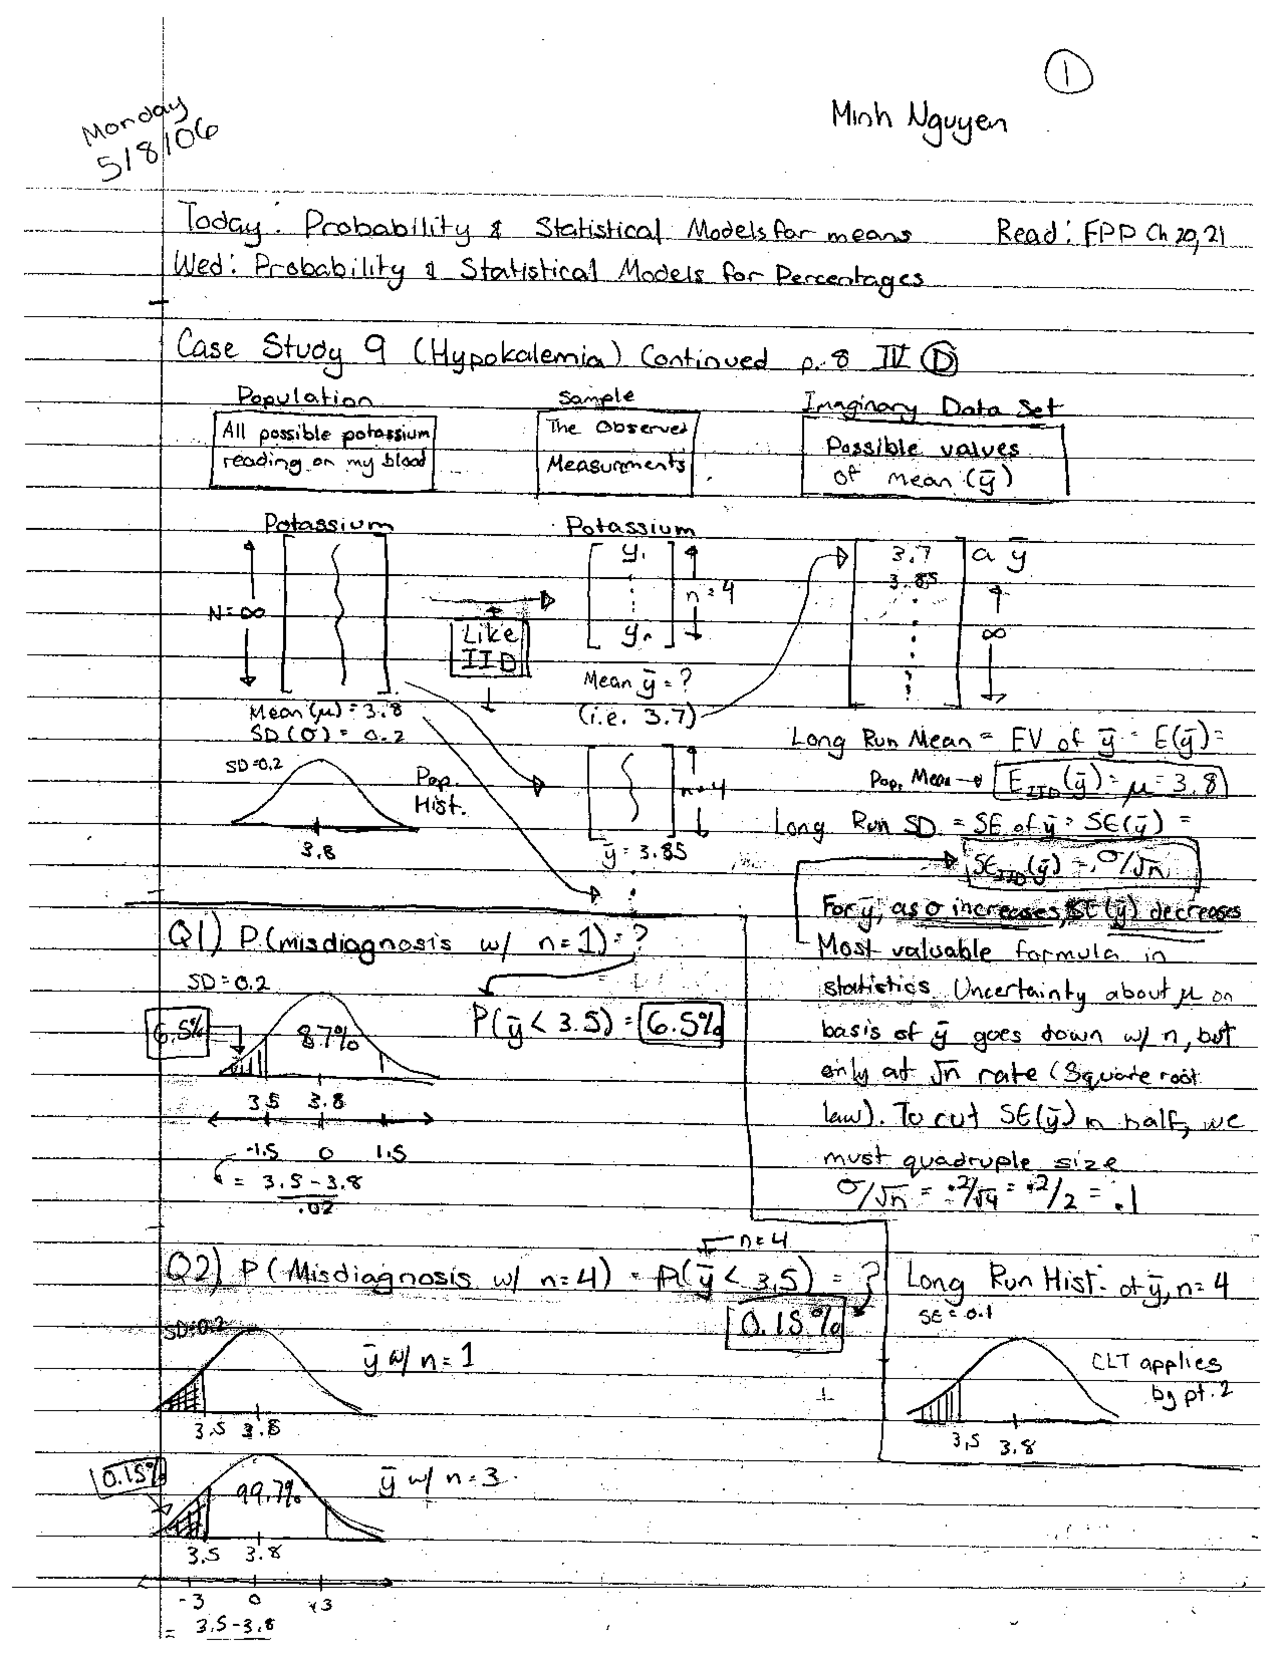 1
Minh Nguyen
Monday
5/8/06
Today: Probability & Statistical Models for means Read: FPP Ch 20,21
Wed: Probability & Statistical Models for Percentages
Case Study 9 (Hypokalemia) Continued p.8 IV D
Population
All possible potassium
reading on my blood
Sample
The Observed
Measurments
Imaginary Data Set
Possible values
of mean (ȳ)
Potassium
N=∞
Mean (μ) = 3.8
SD (σ) = 0.2
SD=0.2
Pop.
Hist.
3.8
Like
IID
Potassium
y₁
yₙ
n=4
Mean ȳ = ?
(i.e. 3.7)
n=4
ȳ = 3.85
3.7
3.85
a ȳ
∞
Long Run Mean = EV of ȳ = E(ȳ) =
Pop. Mean → E_IID(ȳ) = μ = 3.8
Long Run SD = SE of ȳ = SE(ȳ) =
SE_IID(ȳ) = σ/√n
For ȳ, as σ increases, SE(ȳ) decreases
Most valuable formula in
statistics. Uncertainty about μ on
basis of ȳ goes down w/ n, but
only at √n rate (Square root
law). To cut SE(ȳ) n half, we
must quadruple size
σ/√n = .2/√4 = .2/2 = .1
Q1) P(misdiagnosis w/ n=1) = ?
SD=0.2
P(ȳ < 3.5) = 6.5%
6.5%
87%
3.5 3.8
-1.5 0 1.5
= 3.5-3.8
.02
Q2) P(Misdiagnosis w/ n=4) = P(ȳ < 3.5) = ?
n=4
0.15%
SD=0.2
ȳ w/ n=1
3.5 3.8
0.15%
99.7%
ȳ w/ n=3
3.5 3.8
-3 0 +3
= 3.5-3.8
Long Run Hist. of ȳ, n=4
SE=0.1
CLT applies
by pt.2
3.5 3.8